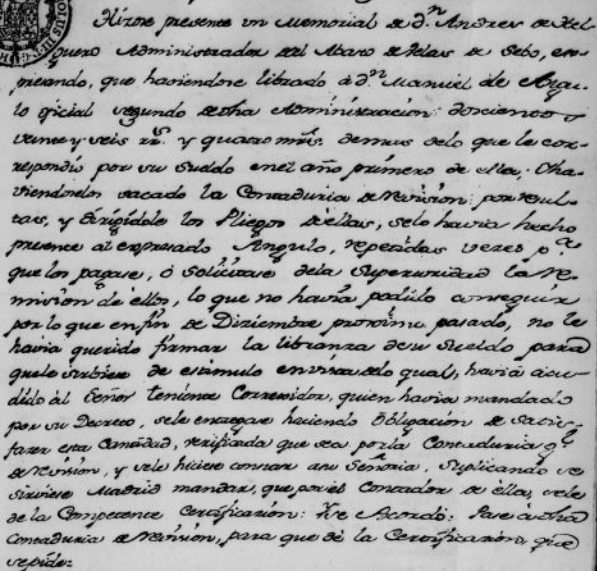 Hizose presente un Memorial de dn. Andres de Hel-
guero Administrador del Abasto de Velas de Sebo, ex-
presando, que haviendose librado á dn. Manuel de Angu-
lo oficial segundo de dha Administracion doscientos
veinte y seis rrs. y quatro mrs. demas de lo que le cor-
respondió por su Sueldo en el año primero de ella; y ha-
viendoselos sacado la Contaduria de revision por resul-
tas, y dirigidole los Pliegos de ellas, selo havia hecho
presente al expresado Angulo, repetidas vezes pa.
que los pagase, ó solicitase dela Superioridad la re-
mision de ellos, lo que no havia podido conseguir
por lo que en fin de Diziembre proximo pasado, no le
havia querido firmar la libranza de su Sueldo para
que le sirbiese de estimulo en vista delo qual, havia acu-
dido al Señor teniente Corregidor, quien havia mandado
por su Decreto, sele entregase haciendo obligacion de satis-
fazer esta Cantidad, verificada que sea por la Contaduria gl.
de revision, y sele hiciese constar a su Señoria, Suplicando se
sirviese Madrid mandar, que por el Contador de ella, sele
de la Competente Certificacion: Y se Acordó: Pase a dha
Contaduria de revision, para que dé la Certificacion, que
se pide: